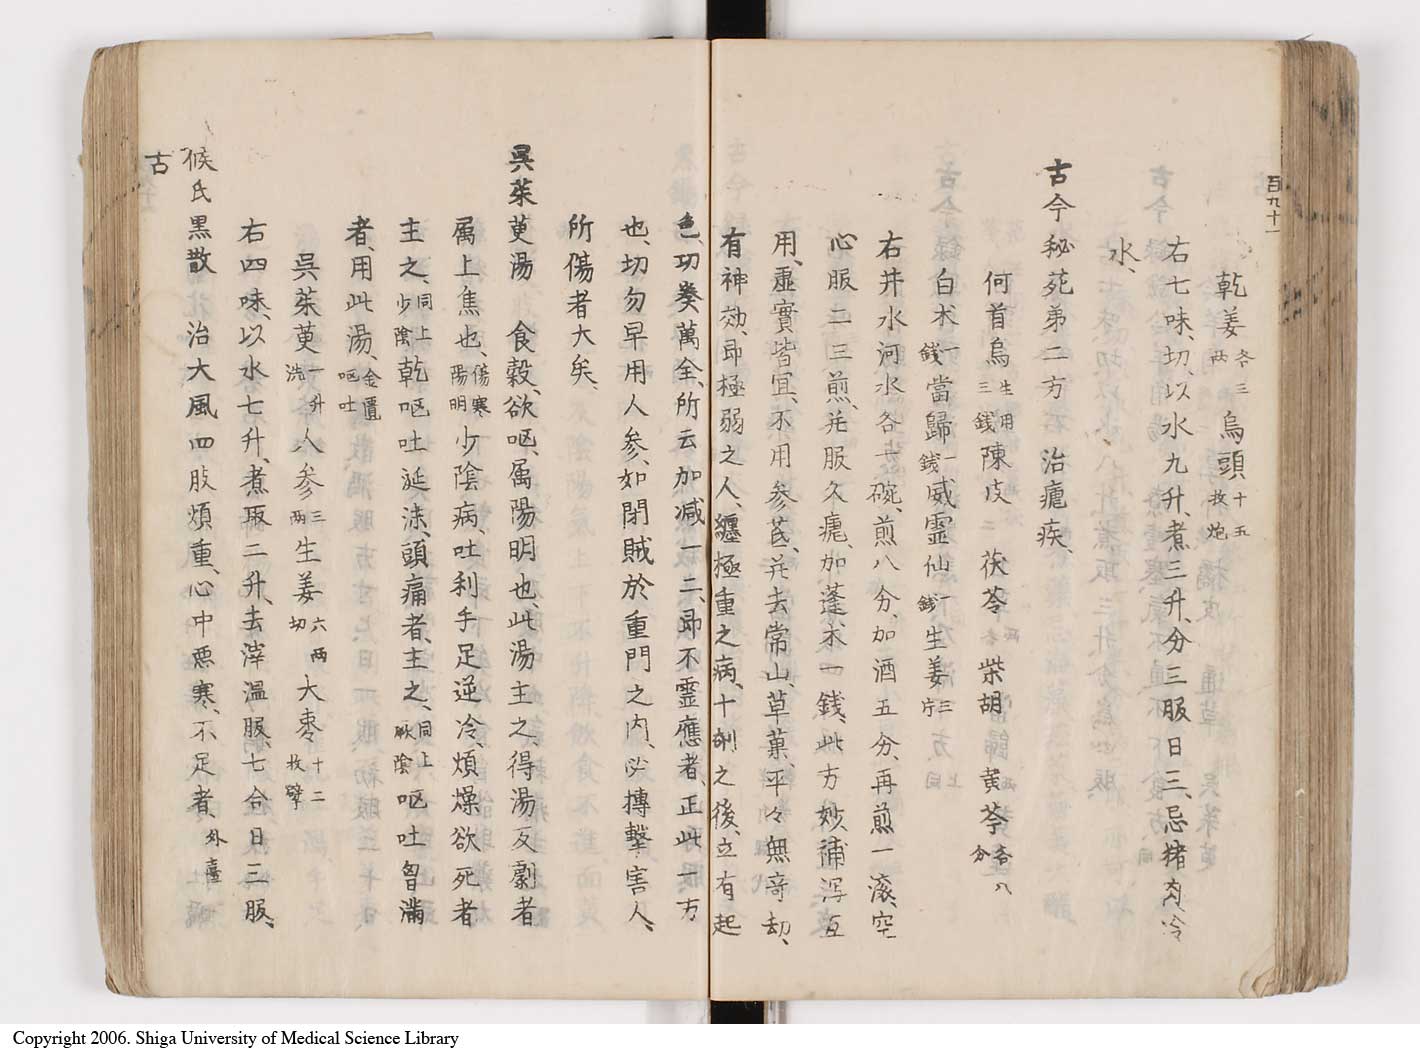 百九十一
乾姜各三両烏頭十五枚炮
右七味、切、以水九升、煮三升、分三服日三、忌猪肉、冷
水、
古今秘苑第二方　治瘧疾、
何首烏生用三銭陳皮二　茯苓　柴胡　黄芩各八分
白朮一銭當歸一銭威霊仙一銭生姜三片
右井水河水各一碗、煎八分、加酒五分、再煎一滚、空
心服二三煎、并服久瘧、加蓬朮一銭、此方妙、補瀉互
用、虚實皆宜、不用参芪、并去常山、草菓、平々無奇、却
有神効、即極弱之人、纏極重之病、十剤之後、立有起
色、功奏萬全、所云加减一二、即不霊應者、正此一方
也、切勿早用人参、如閉賊於重門之内、必摶撃害人、
所傷者大矣、
呉茱萸湯　食穀、欲呕、属陽明也、此湯主之、得湯反劇者
属上焦也、傷寒陽明少陰病、吐利手足逆冷、煩燥欲死者
主之、同上少陰乾呕吐涎沫、頭痛者、主之、同上厥陰呕吐胷満
者、用此湯、金匱呕吐
呉茱萸一升洗人参三両生姜六両切大棗十二枚擘
右四味、以水七升、煮取二升、去滓温服、七合日三服、
候氏黒散　治大風四肢煩重、心中悪寒、不足者、外臺
古